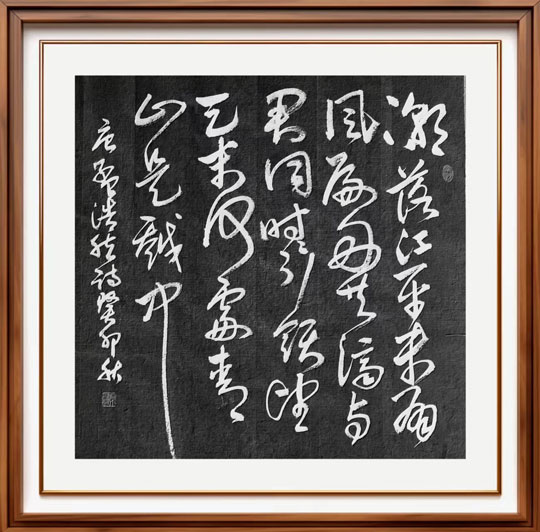 潮落江平未有
風扁舟共濟与
君同時時引領望
天末何處青
山是越中
唐孟浩然詩癸卯秋